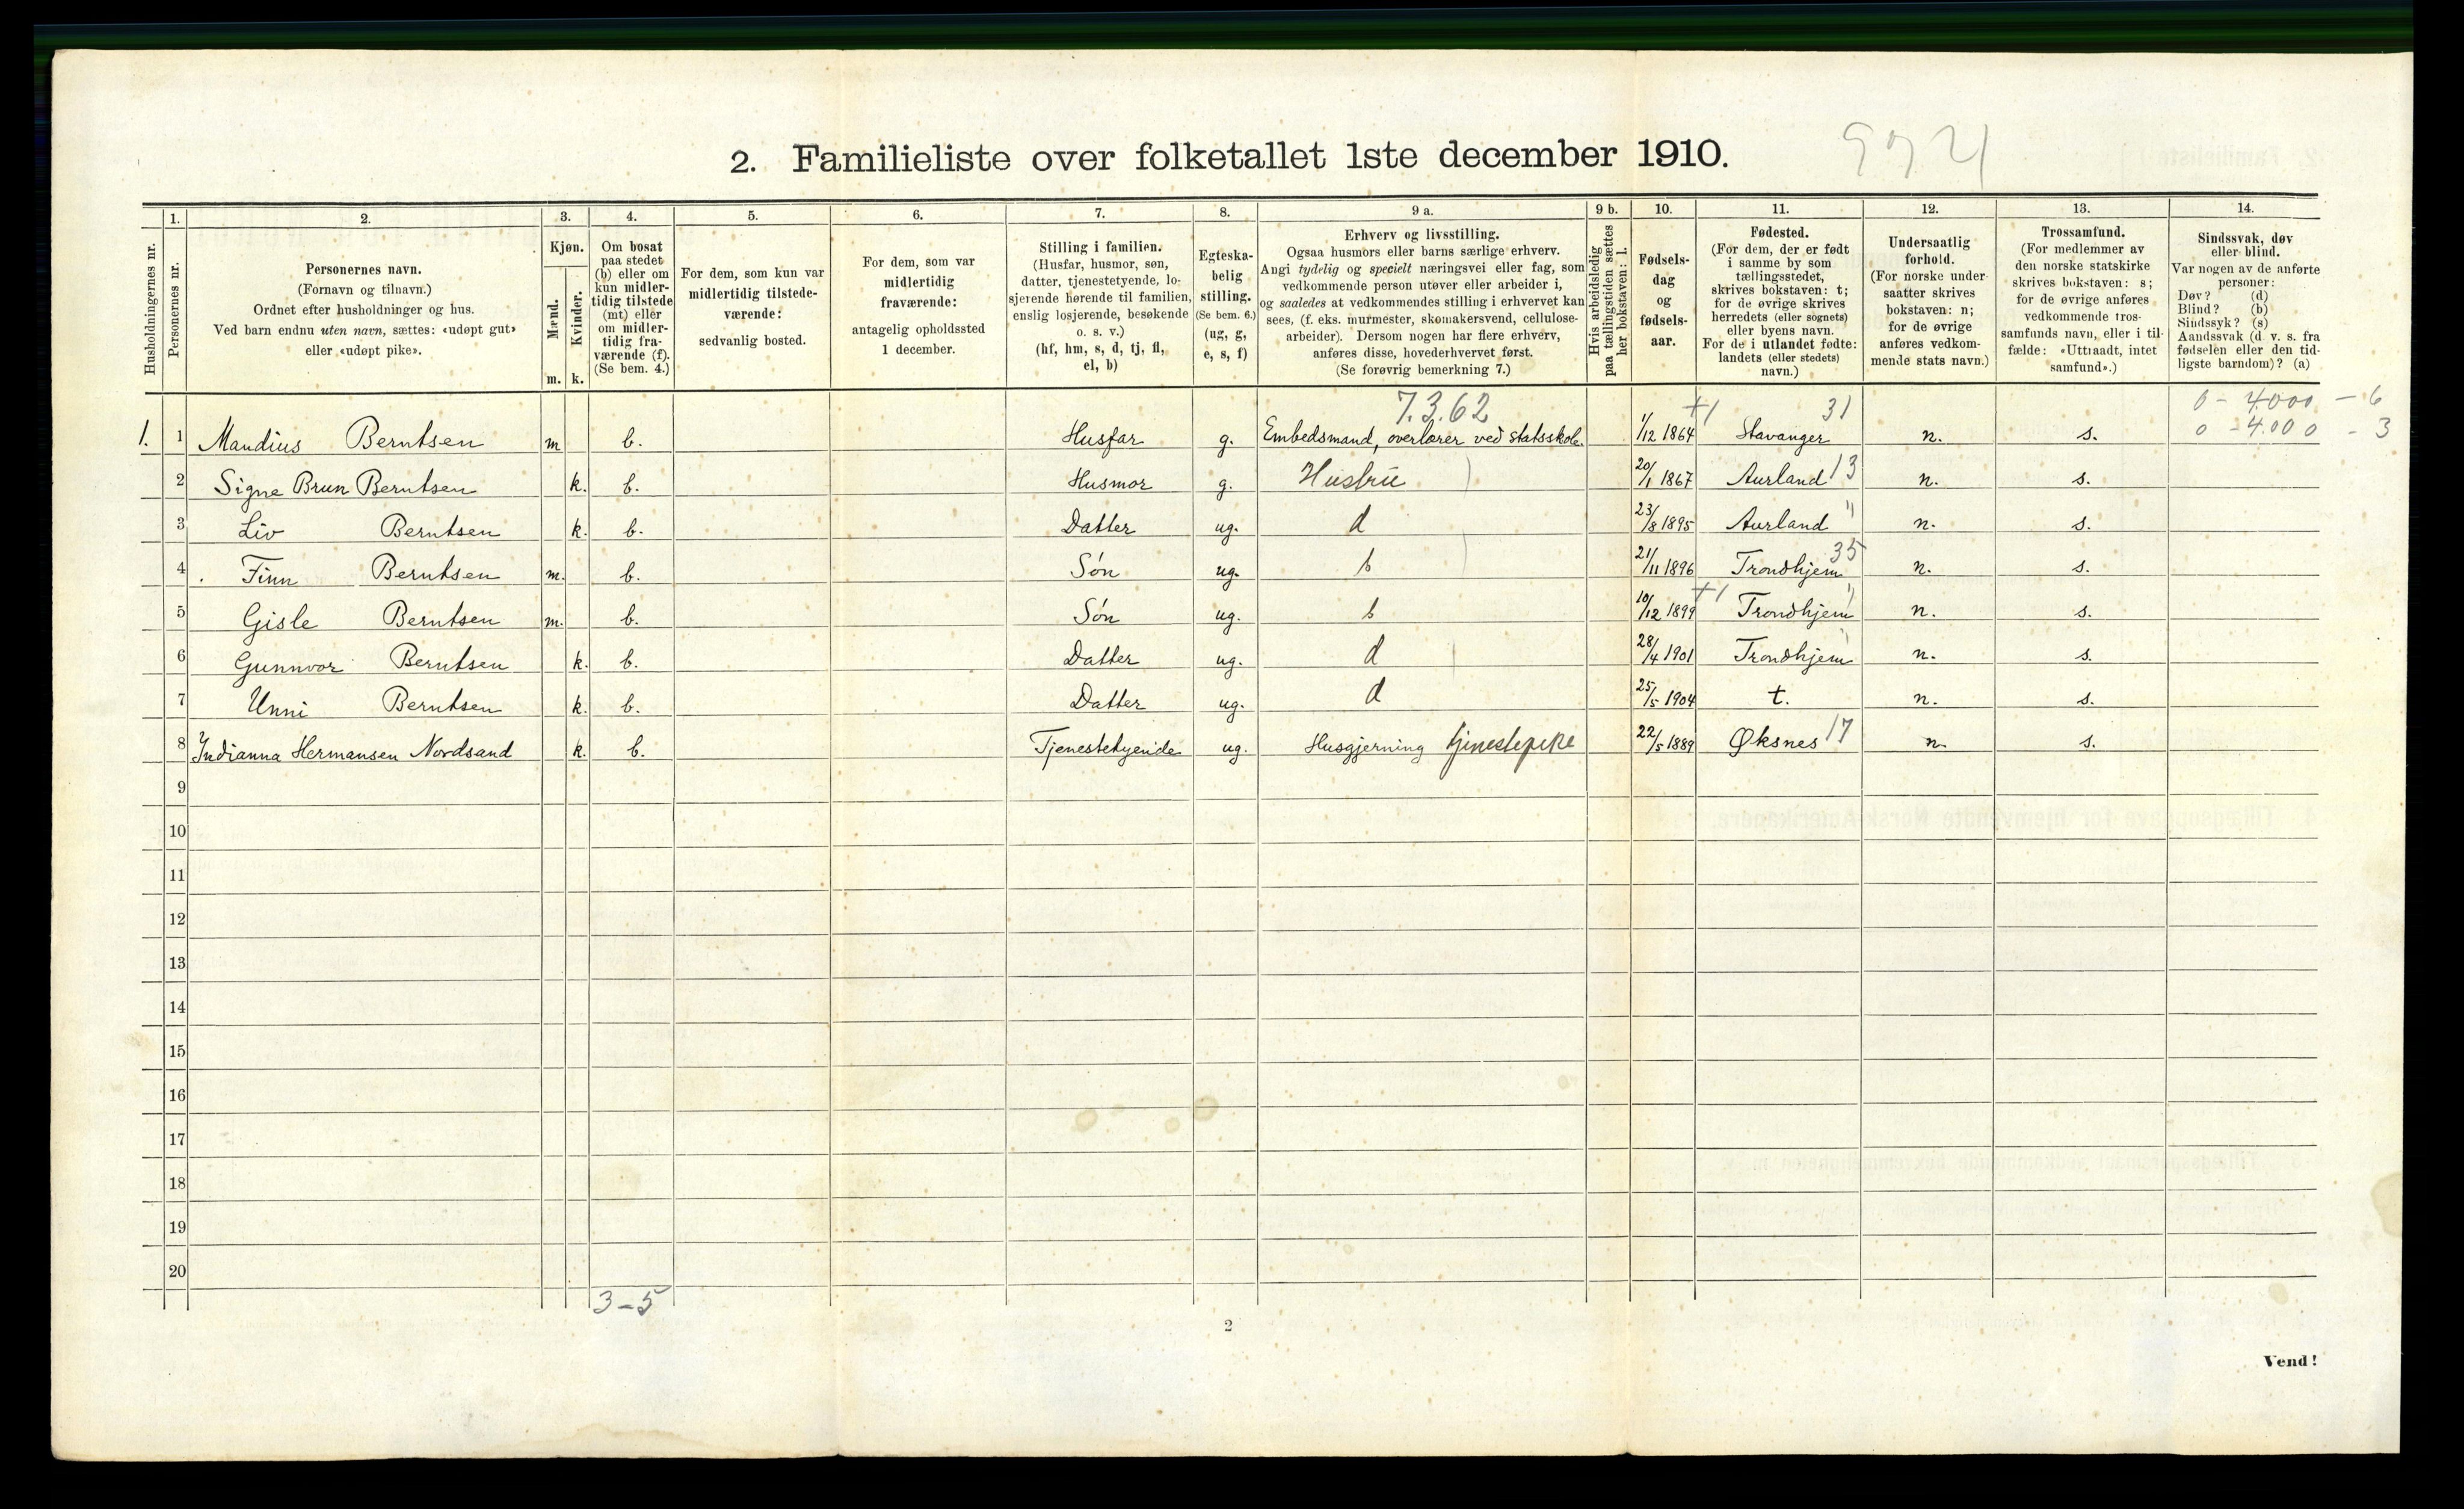 2. Familieliste over folketallet 1ste december 1910.
1. 2. 3. 4. 5. 6. 7. 8. 9 a. 9 b. 10. 11. 12. 13. 14.
Husholdningernes nr.
Personernes nr.
Personernes navn.
(Fornavn og tilnavn.)
Ordnet efter husholdninger og hus.
Ved barn endnu uten navn, sættes: «udøpt gut»
eller «udøpt pike».
Kjøn.
Mænd.
Kvinder.
m. k.
Om bosat
paa stedet
(b) eller om
kun midler-
tidig tilstede
(mt) eller
om midler-
tidig fra-
værende (f).
(Se bem. 4.)
For dem, som kun var
midlertidig tilstede-
værende:
sedvanlig bosted.
For dem, som var
midlertidig
fraværende:
antagelig opholdssted
1 december.
Stilling i familien.
(Husfar, husmor, søn,
datter, tjenestetyende, lo-
sjerende hørende til familien,
enslig losjerende, besøkende
o. s. v.)
(hf, hm, s, d, tj, fl,
el, b)
Egteska-
belig
stilling.
(Se bem. 6.)
(ug, g,
e, s, f)
Erhverv og livsstilling.
Ogsaa husmors eller barns særlige erhverv.
Angi tydelig og specielt næringsvei eller fag, som
vedkommende person utøver eller arbeider i,
og saaledes at vedkommendes stilling i erhvervet kan
sees, (f. eks. murmester, skomakersvend, cellulose-
arbeider). Dersom nogen har flere erhverv,
anføres disse, hovederhvervet først.
(Se forøvrig bemerkning 7.)
Hvis arbeidsledig
paa tællingstiden sættes
her bokstaven: l.
Fødsels-
dag
og
fødsels-
aar.
Fødested.
(For dem, der er født
i samme by som
tællingsstedet,
skrives bokstaven: t;
for de øvrige skrives
herredets (eller sognets)
eller byens navn.
For de i utlandet fødte:
landets (eller stedets)
navn.)
Undersaatlig
forhold.
(For norske under-
saatter skrives
bokstaven: n;
for de øvrige
anføres vedkom-
mende stats navn.)
Trossamfund.
(For medlemmer av
den norske statskirke
skrives bokstaven: s;
for de øvrige anføres
vedkommende tros-
samfunds navn, eller i til-
fælde: «Uttraadt, intet
samfund».)
Sindssvak, døv
eller blind.
Var nogen av de anførte
personer:
Døv? (d)
Blind? (b)
Sindssyk? (s)
Aandssvak (d. v. s. fra
fødselen eller den tid-
ligste barndom)? (a)
7.3.62 +1 31 0 - 4000 - 6
1. 1 Mandius Berntsen m b. Husfar g. Embedsmand, overlærer ved statsskole. 1/12 1864 Stavanger n. s. 0 - 4000 - 3
2 Signe Brun Berntsen k. b. Husmor g. Hustru 20/1 1867 Aurland 13 n. s.
3 Liv Berntsen k. b. Datter ug. d 23/8 1895 Aurland " n. s.
4 Finn Berntsen m. b. Søn ug. s 21/11 1896 Trondhjem 35 n. s.
5 Gisle Berntsen m. b. Søn ug. s 10/12 1899 +1 Trondhjem " n. s.
6 Gunnvor Berntsen k. b. Datter ug. d 28/4 1901 Trondhjem " n. s.
7 Unni Berntsen k. b. Datter ug. d 25/5 1904 t. n. s.
8 Indianna Hermansen Nordsand k. b. Tjenestetyende ug. Husgjerning tjenestepike 22/5 1889 Øksnes 17 n. s.
9
10
11
12
13
14
15
16
17
18
19
20
3-5
2
Vend!